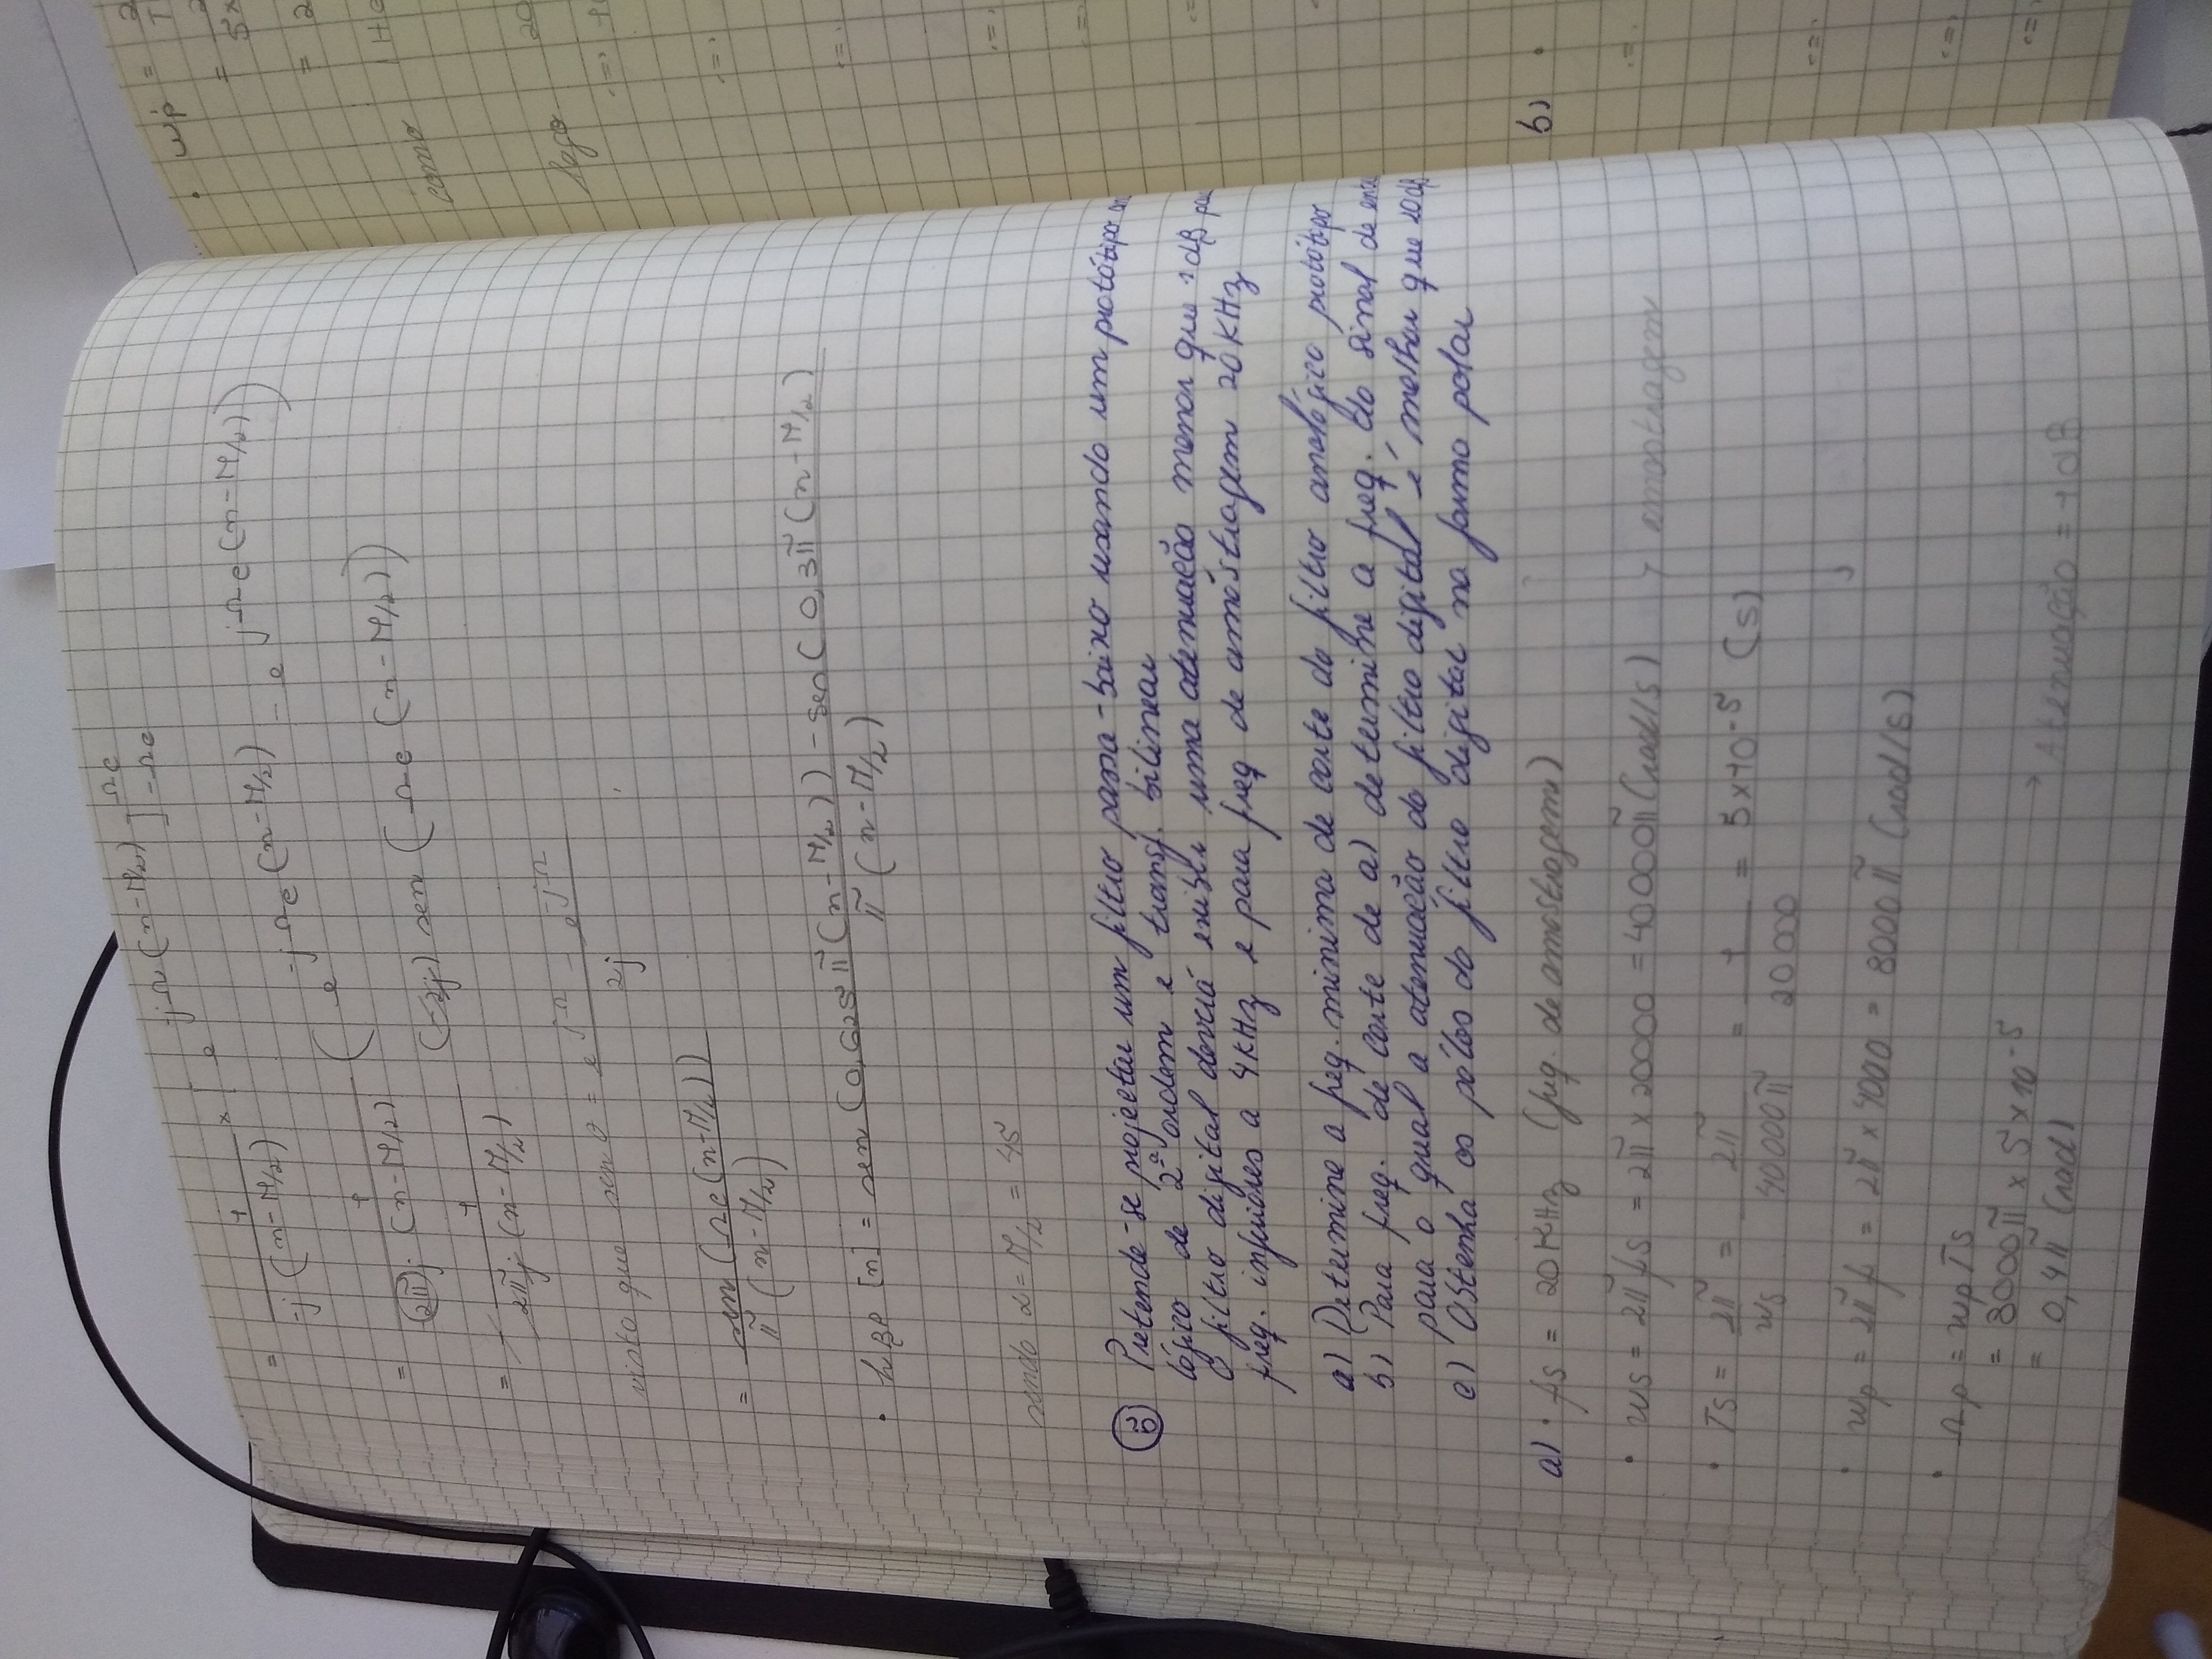 = 1/(-j(n-M/2)) × [e^-jΩ(n-M/2)]^Ωc_-Ωc
= 1/(2π j (n-M/2)) (e^-jΩc(n-M/2) - e^jΩc(n-M/2))
= - 1/(2πj (n-M/2)) (-2j) sen (Ωc (n-M/2))
visto que sen θ = (e^jΩ - e^-jΩ)/2j
= sen(Ωc(n-M/2))/(π(n-M/2))
• hBP [n] = (sen(0,625π(n-M/2)) - sen(0,3π(n-M/2)))/(π(n-M/2))
sendo α = M/2 = 45
5 Pretende-se projetar um filtro passa-baixo usando um protótipo
lógico de 2ª ordem e transf. bilinear
O filtro digital deverá exibir uma atenuação menor que 1dB
freq. inferiores a 4KHz e para freq de amostragem 20KHz
a) Determine a freq. minima de corte do filtro analógico protótipo
b) Para freq. de corte de a) determine a freq. do sinal de
para o qual a atenuação do filtro digital é melhor que 10dB
c) Obtenha os pólos do filtro digital na forma polar
a) • fs = 20KHz (freq. de amostragem)
• ws = 2πfs = 2π × 20000 = 40000π (rad/s) amostragem
• Ts = 2π/ws = 2π/40000π = 1/20000 = 5×10^-5 (s)
• wp = 2πf = 2π × 4000 = 8000π (rad/s)
• Ωp = wp Ts
= 8000π × 5 × 10^-5
= 0,4π (rad) → Atenuação = -1dB
• wp =
=
=
como
logo
b) •